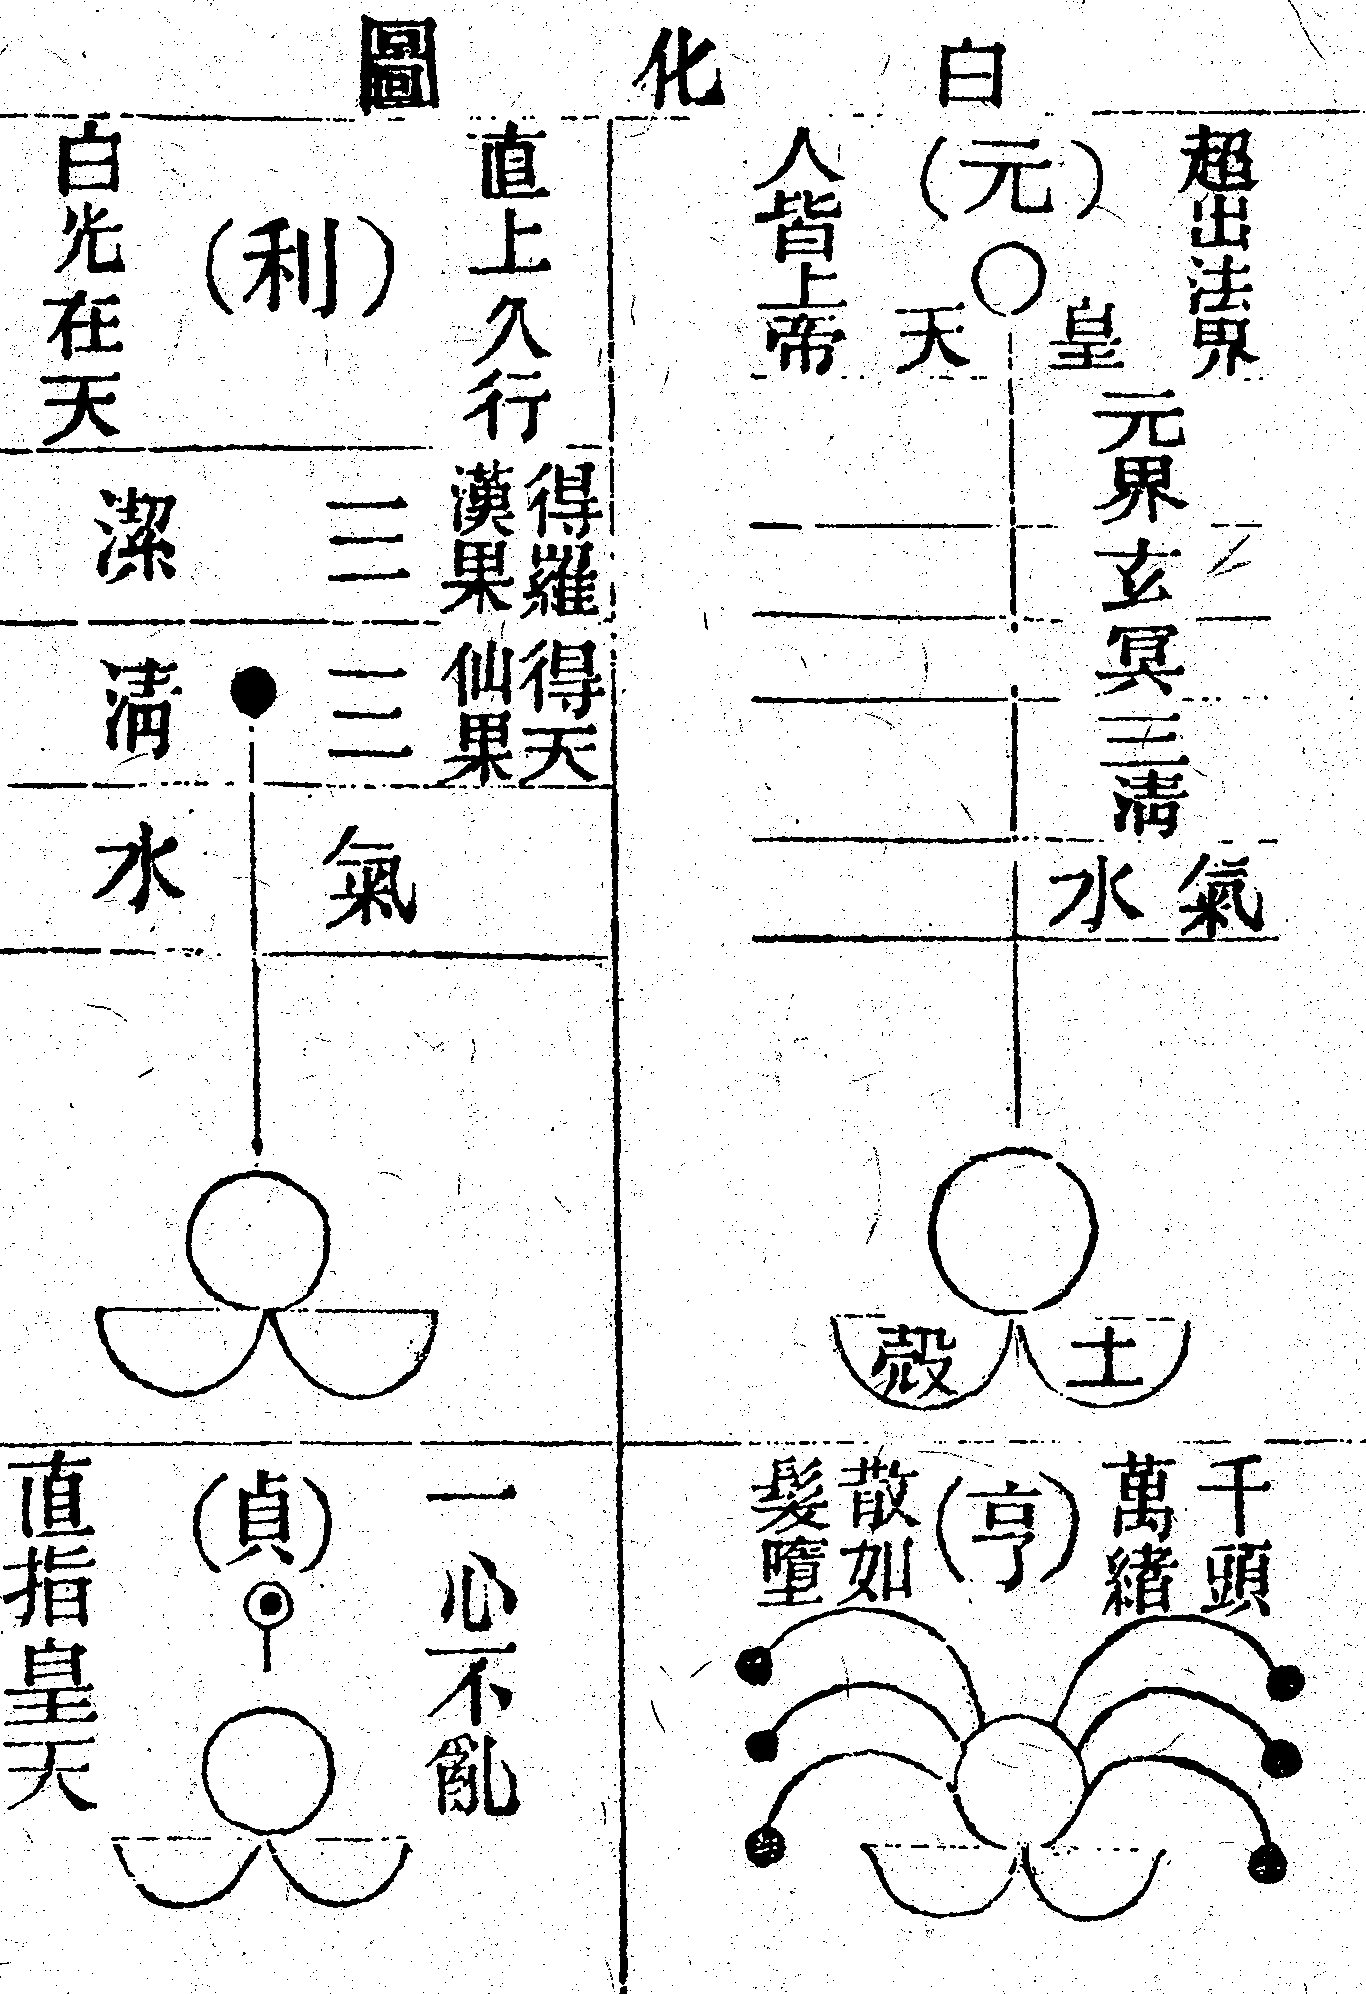 白化圖
超出法界
(元)
人皆上帝
皇天
元界玄冥三淸
氣水
土殼
千頭萬緒
(亨)
散如髮墮
直上久行
(利)
白光在天
得羅漢果
三潔
得天仙果
三淸
氣水
一心不亂
(貞)
直指皇天